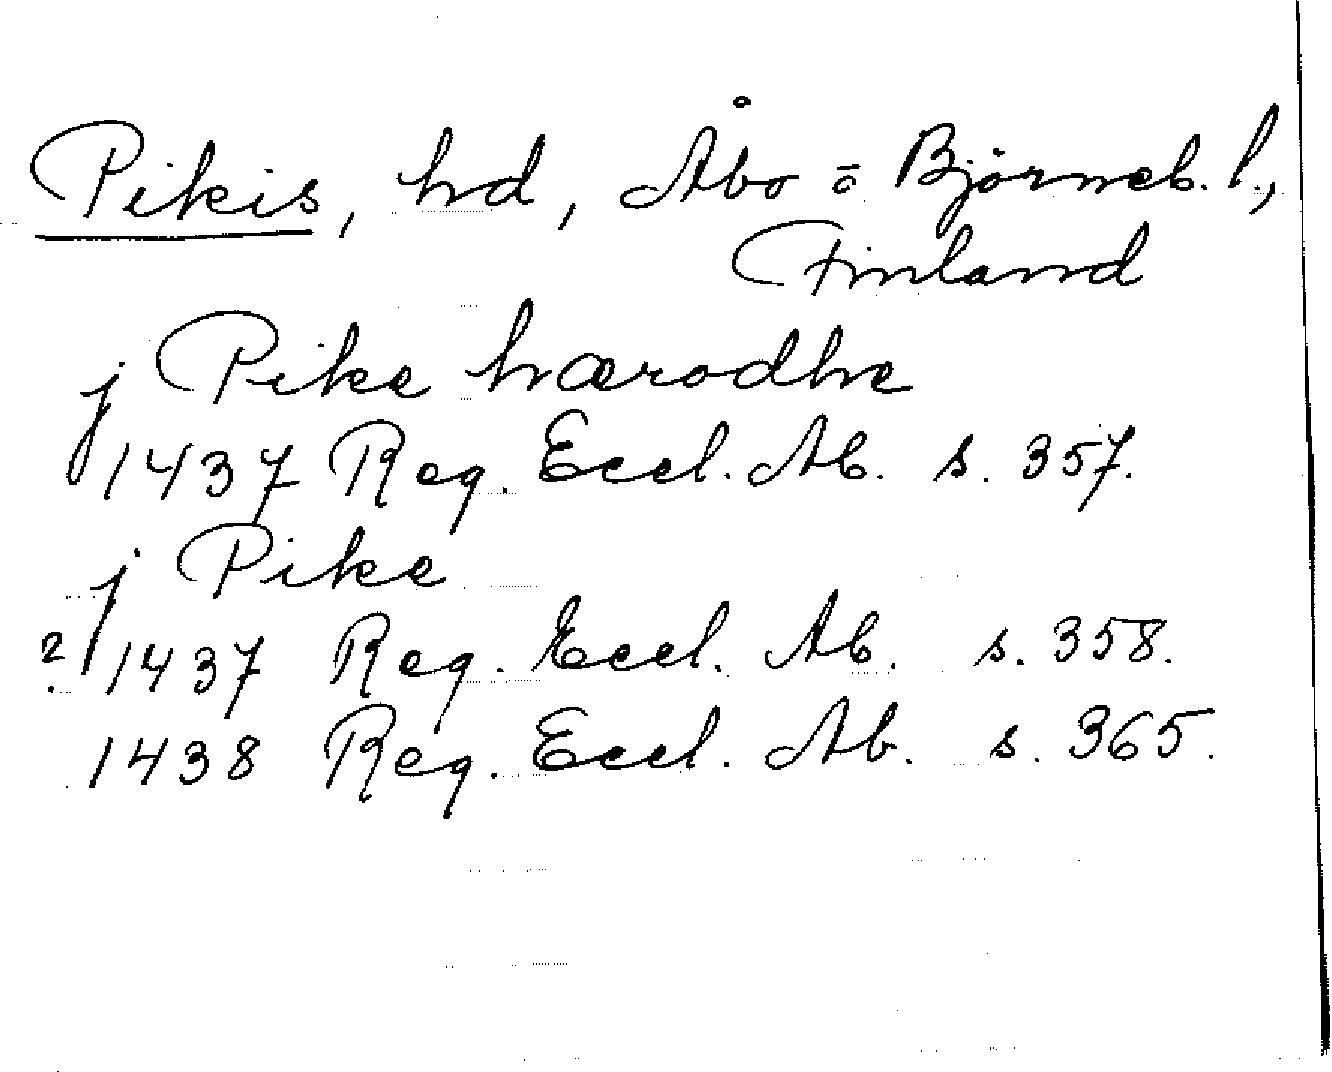 Pikis, hd, Åbo o Björneb. l.,
Finland
j Pike hærodhe
1437 Reg. Eccl. Ab. s. 357.
j Pike
? 1437 Reg. Eccl. Ab. s. 358.
1438 Reg. Eccl. Ab. s. 365.